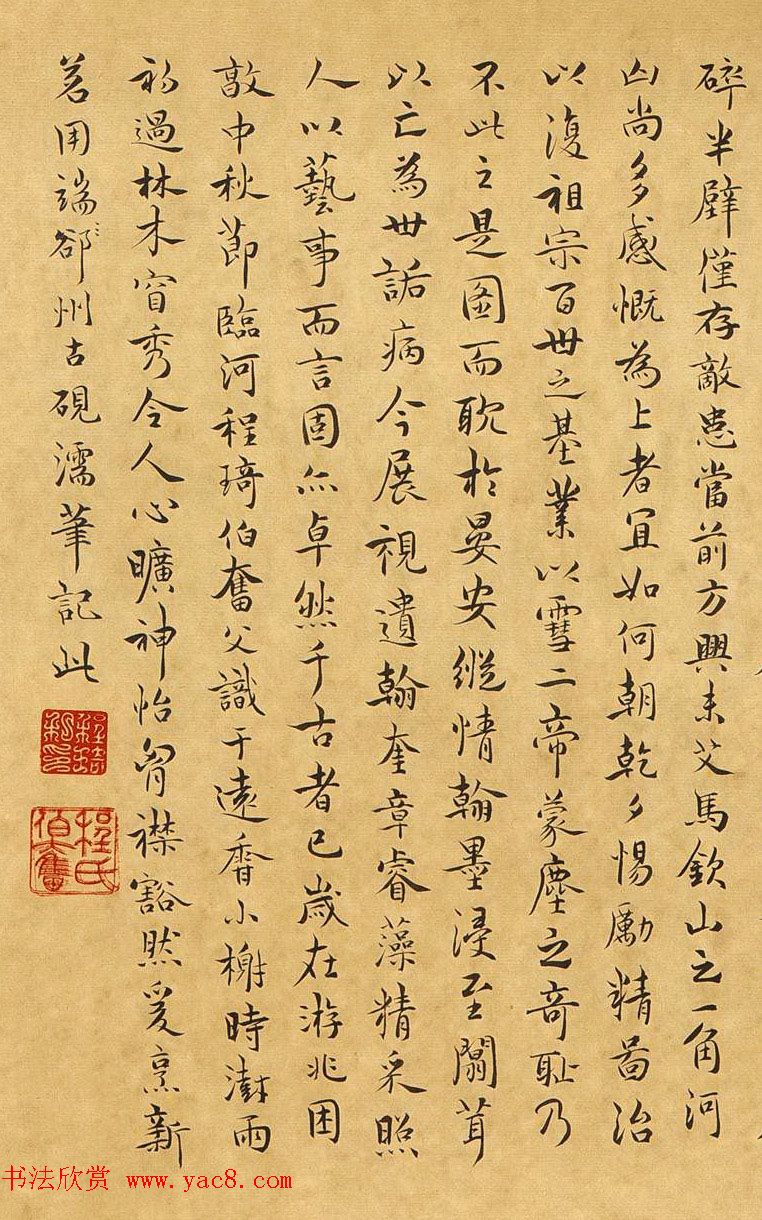 碎半壁僅存敵患當前方興未艾馬欽山之一角河
山尚多感慨為上者宜如何朝乾夕惕勵精啚治
以復祖宗百世之基業以雪二帝蒙塵之奇耻乃
不此之是圖而耽於晏安縱情翰墨浸至闒茸
以亡為世詬病今展視遺翰奎章睿藻精采照
人以藝事而言固亦卓然千古者已歲在游兆困
敦中秋節臨河程琦伯奮父識于遠香小榭時澍雨
初過林木窅秀令人心曠神怡胷襟豁然爰烹新
茗用端郤州古硯濡筆記此
程氏伯奮
书法欣赏 www.yac8.com